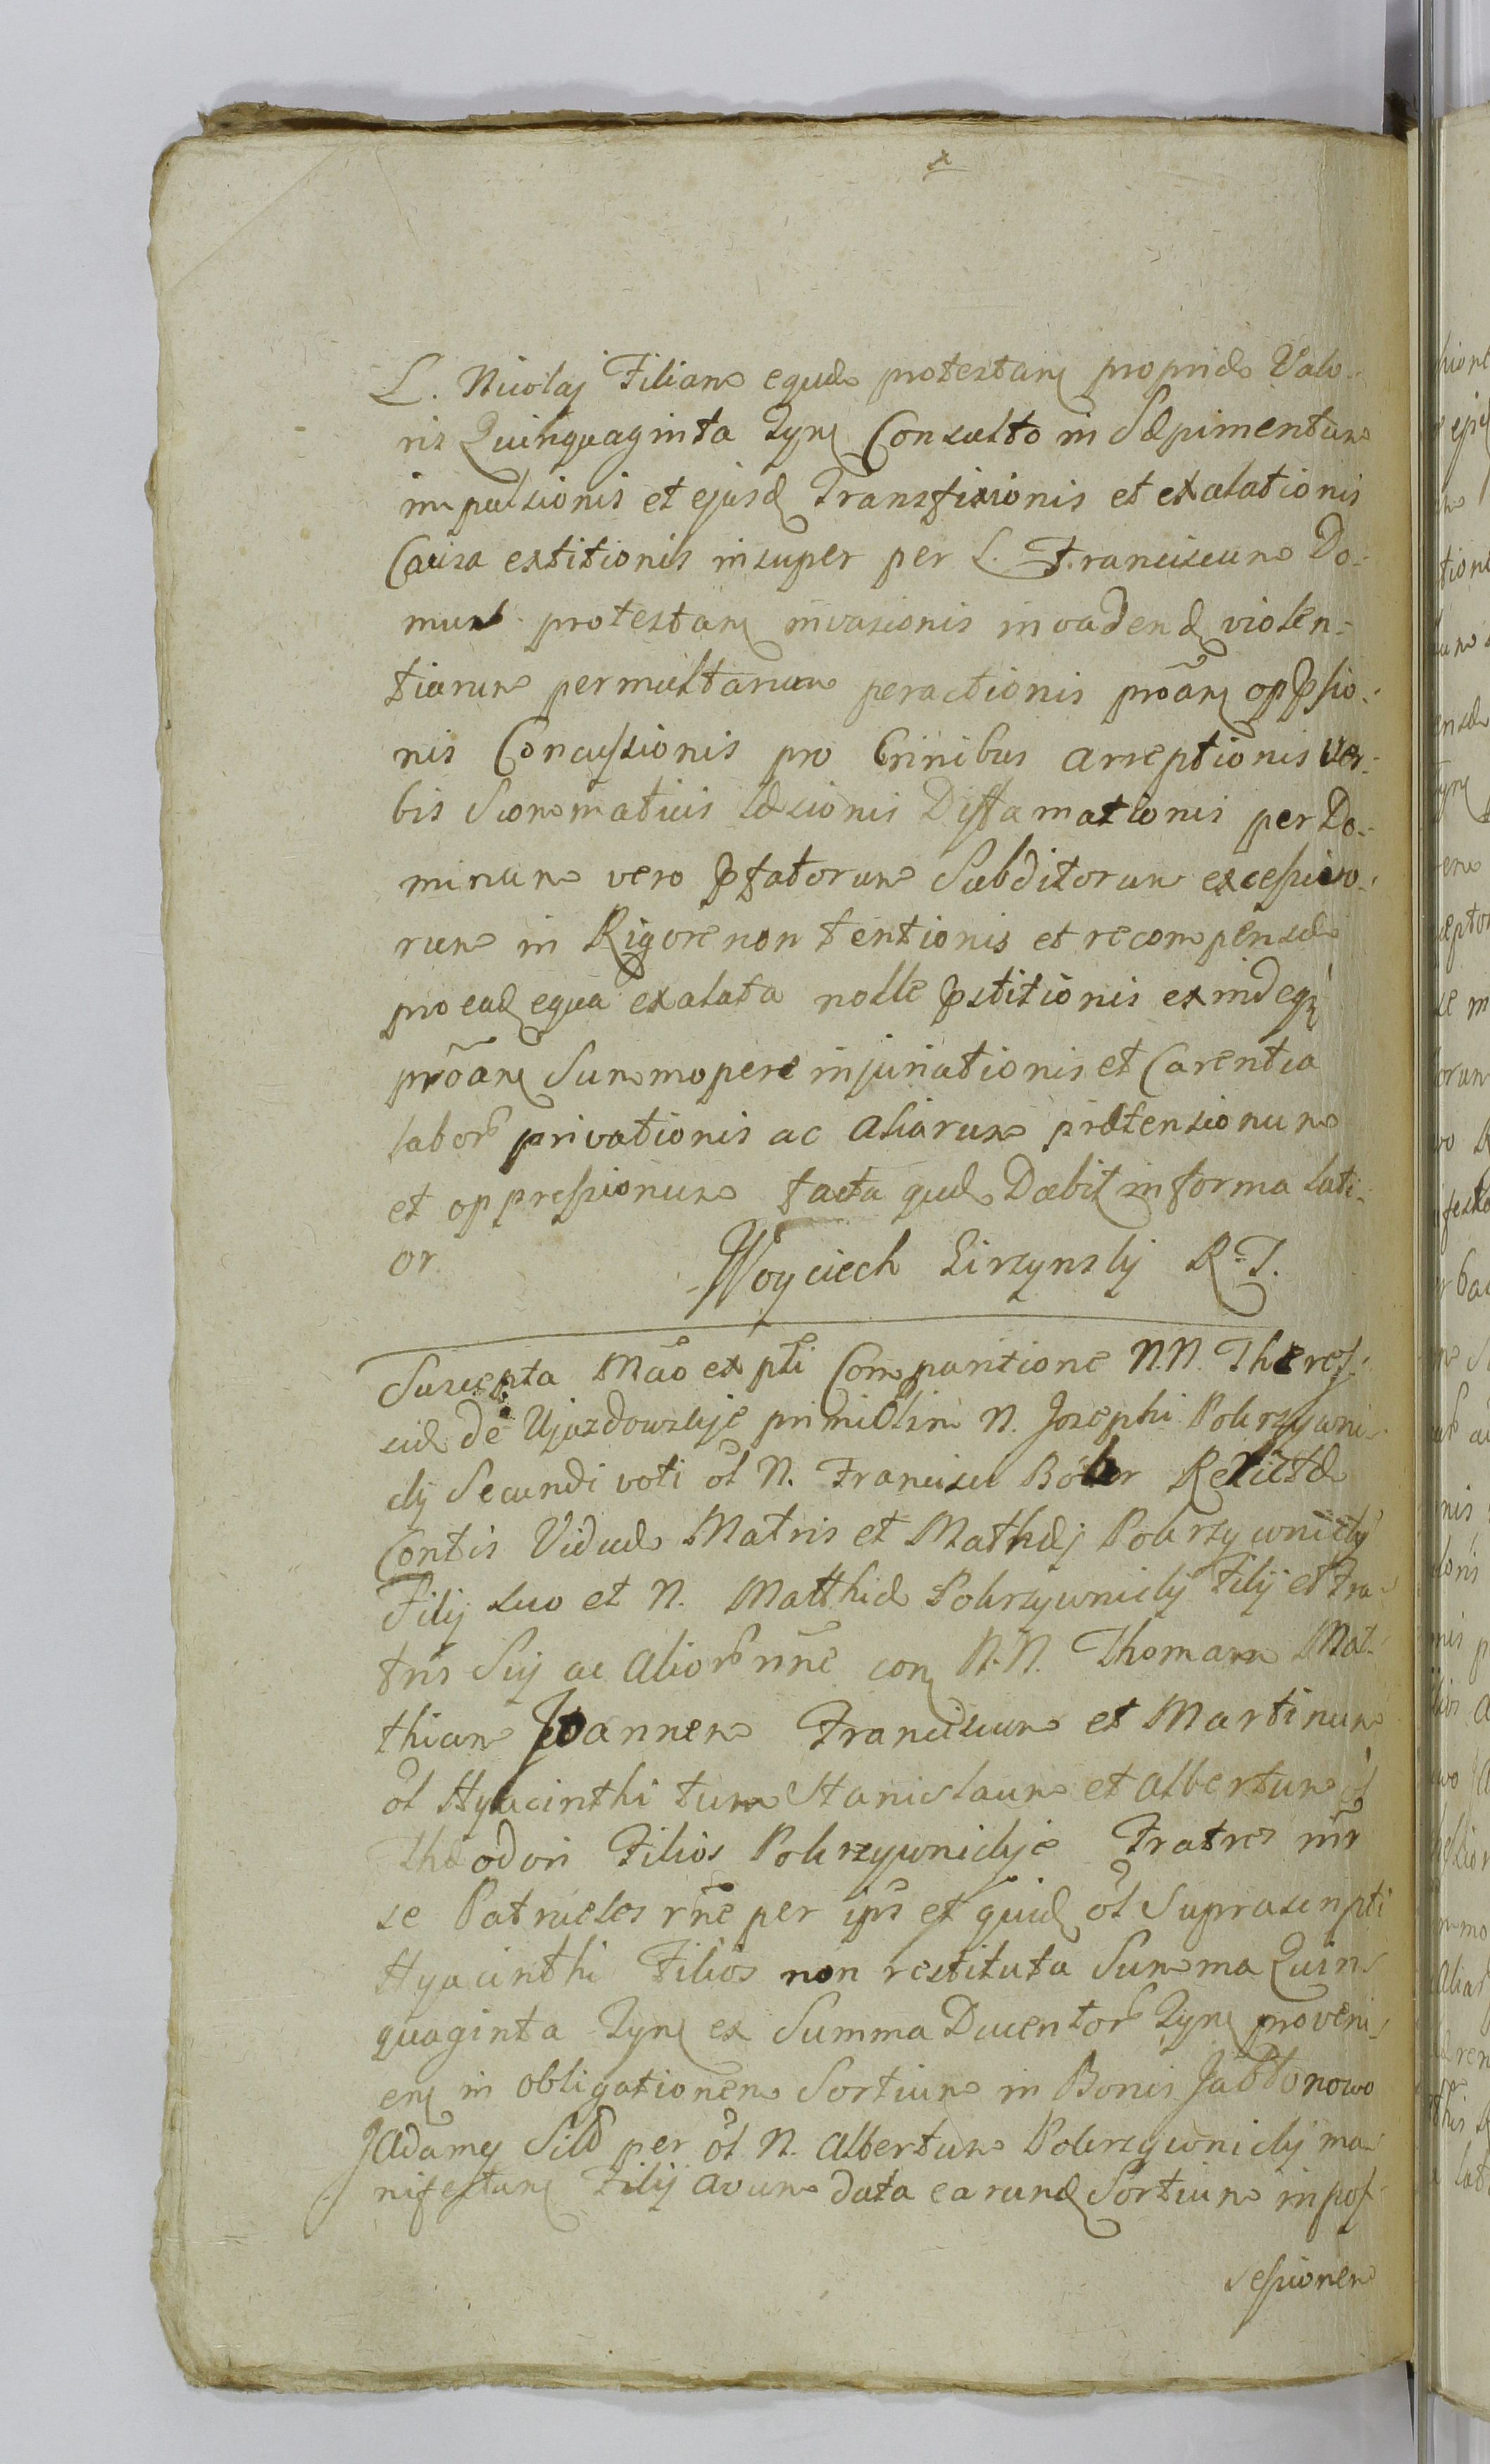 L. Nicolaj Filiam equæ protestan͂ propriæ Valo-
ris Quinquaginta Tyn͂ Consulto in Sæpimentum
impulsionis et ejusd͂ Transfixionis et exalationis
Causa extitionis insuper per L. Franciscum Do-
mus protestan͂ invasionis invadend͂ violen-
tiarum permultarum peractionis prõan͂ opp̃sio-
nis Concussionis pro Crinibus arreptionis Ver-
bis Scommaticis læsionis Diffamationis per Do-
minum vero p̃fatorum Subditorum excessivo-
rum in Rigore non tentionis et recompensæ
pro ead͂ equa exalata nolle p̃stitionis exindeq́
prõan͂ Summopere injuriationis et Carentia
labor͂ privationis ac aliarum prætensionum
et oppressionum facta quæ Dabit in forma lati-
or.
Woyciech Lirzynsky R. T.
Suscepta Mão ex pti͂ Comparitione N.N. Theres-
siæ de Ujazdowskije primi olim N. Josephi Pokrzywni-
cky Secundi voti ol͂ N. Francisci Relictæ
Contis Viduæ Matris et Mathæj Pokrzywnicky
Filij suo et N. Matthiæ Pokrzywnicky Filij et Fra-
tris Sui ac alior͂ nñe con͂ N.N. Thomam Mat-
thiam Joannem Franciscum et Martinum
ol͂ Hyacinthi tum Stanislaum et Albertum ol͂
Theodori Filios Pokrzywnickije Fratres inr͂
se Patrueles rñe per ips͂ et quid͂ ol͂ Suprascripti
Hyacinthi Filios non restituta Summa Quin-
quaginta Tyn͂ ex Summa Ducentor͂ Tyn͂ proveni-
en͂ in obligationem Sortium in Bonis Jabłonowo
Adamy Sitis per ol͂ N. Albertum Pokrzywnicky ma-
nifestan͂ Filij avum data earund͂ Sortium in pos-
sessionem